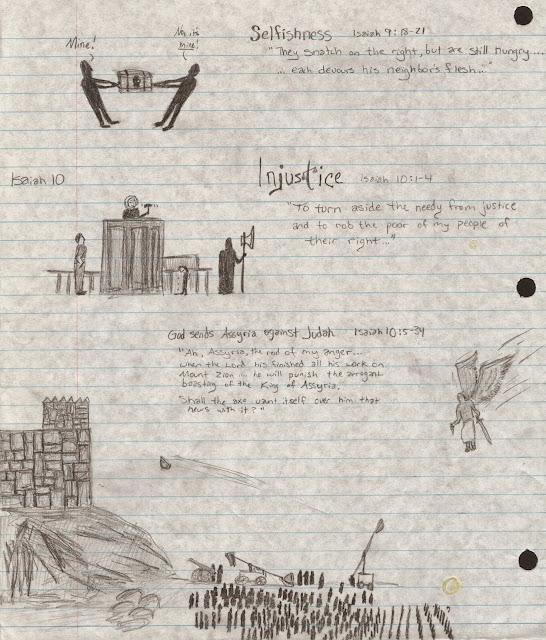 Selfishness Isaiah 9:18-21
Mine!
No, it's
mine!
"They snatch on the right, but are still hungry....
... each devours his neighbor's flesh..."
Isaiah 10
Injustice Isaiah 10:1-4
"To turn aside the needy from justice
and to rob the poor of my people of
their right..."
God sends Assyria against Judah Isaiah 10:5-34
"Ah, Assyria, the rod of my anger...
when the Lord has finished all his work on
Mount Zion ... he will punish the arrogant
boasting of the King of Assyria.
Shall the axe vaunt itself over him that
hews with it?"